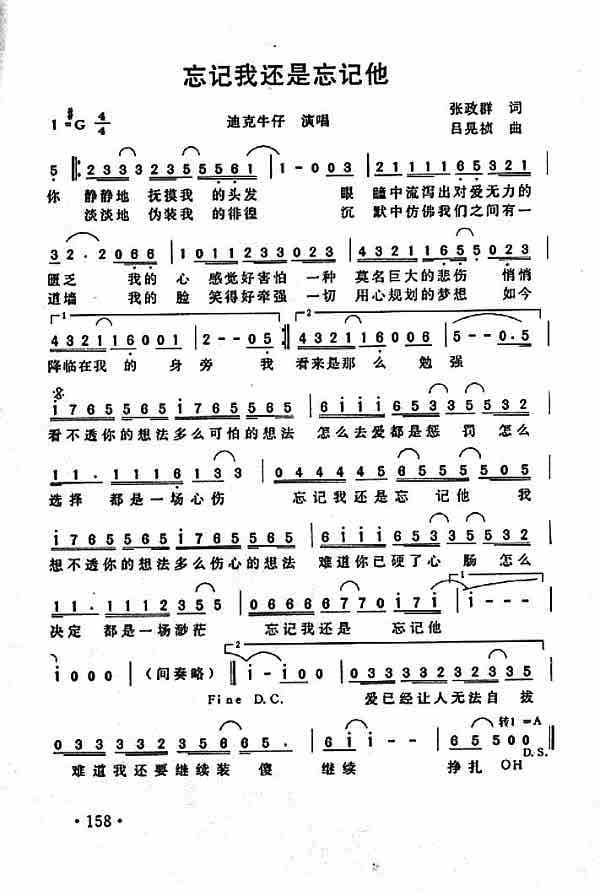 忘记我还是忘记他
1=#G 4/4 迪克牛仔 演唱 张政群 词
吕晃桢 曲
5 ‖: 2 3 3 3 3 2 3 5 5 5 6 1 | 1 - 0 0 3 | 2 1 1 1 1 6 5 3 2 1
你 静静地 抚摸我 的头发 眼 瞳中流泻出对爱无力的
淡淡地 伪装我 的徘徨 沉 默中仿佛我们之间有一
3 2 · 2 0 6 6 | 1 0 1 1 2 3 3 0 2 3 | 4 3 2 1 1 6 5 5 0 2 3
匮乏 我的 心 感觉好害怕 一种 莫名巨大的悲伤 悄悄
道墙 我的 脸 笑得好牵强 一切 用心规划的梦想 如今
1 2
4 3 2 1 1 6 0 0 1 | 2 - - 0 5 :‖ 4 3 2 1 1 6 0 0 6 | 5 - - 0 . 5
降临在我 的 身 旁 我 看来是那 么 勉 强
1 7 6 5 5 6 5 1 7 6 5 5 6 5 | 6 1 1 1 6 5 3 3 5 5 3 2
看不透你的想法多么可怕的想法 怎么去爱都是惩 罚怎么
1 1 . 1 1 1 6 1 3 3 | 0 4 4 4 4 5 6 5 5 5 5 0 5
选择 都是一场心伤 忘记我还是忘 记他 我
1 7 6 5 5 6 5 1 7 6 5 5 6 5 | 6 1 1 1 6 5 3 3 5 5 3 2
想不透你的想法多么伤心的想法 难道你已硬了心 肠 怎么
1
1 1 . 1 1 1 2 3 5 5 | 0 6 6 6 6 6 7 7 0 1 7 1 | 1 - - -
决定 都是一场渺茫 忘记我还是 忘记他
2
1 0 0 0 | (间奏略) ‖ 1 - 1 0 0 | 0 3 3 3 3 2 3 2 3 3 5
Fine D.C. 爱已经让人无法自 拔
转1=A
0 3 3 3 3 2 3 5 6 6 | 6 1 1 - | 6 5 5 0 0 ‖
D.S.
难道我还要继续装 傻 继续 挣扎 OH
·158·